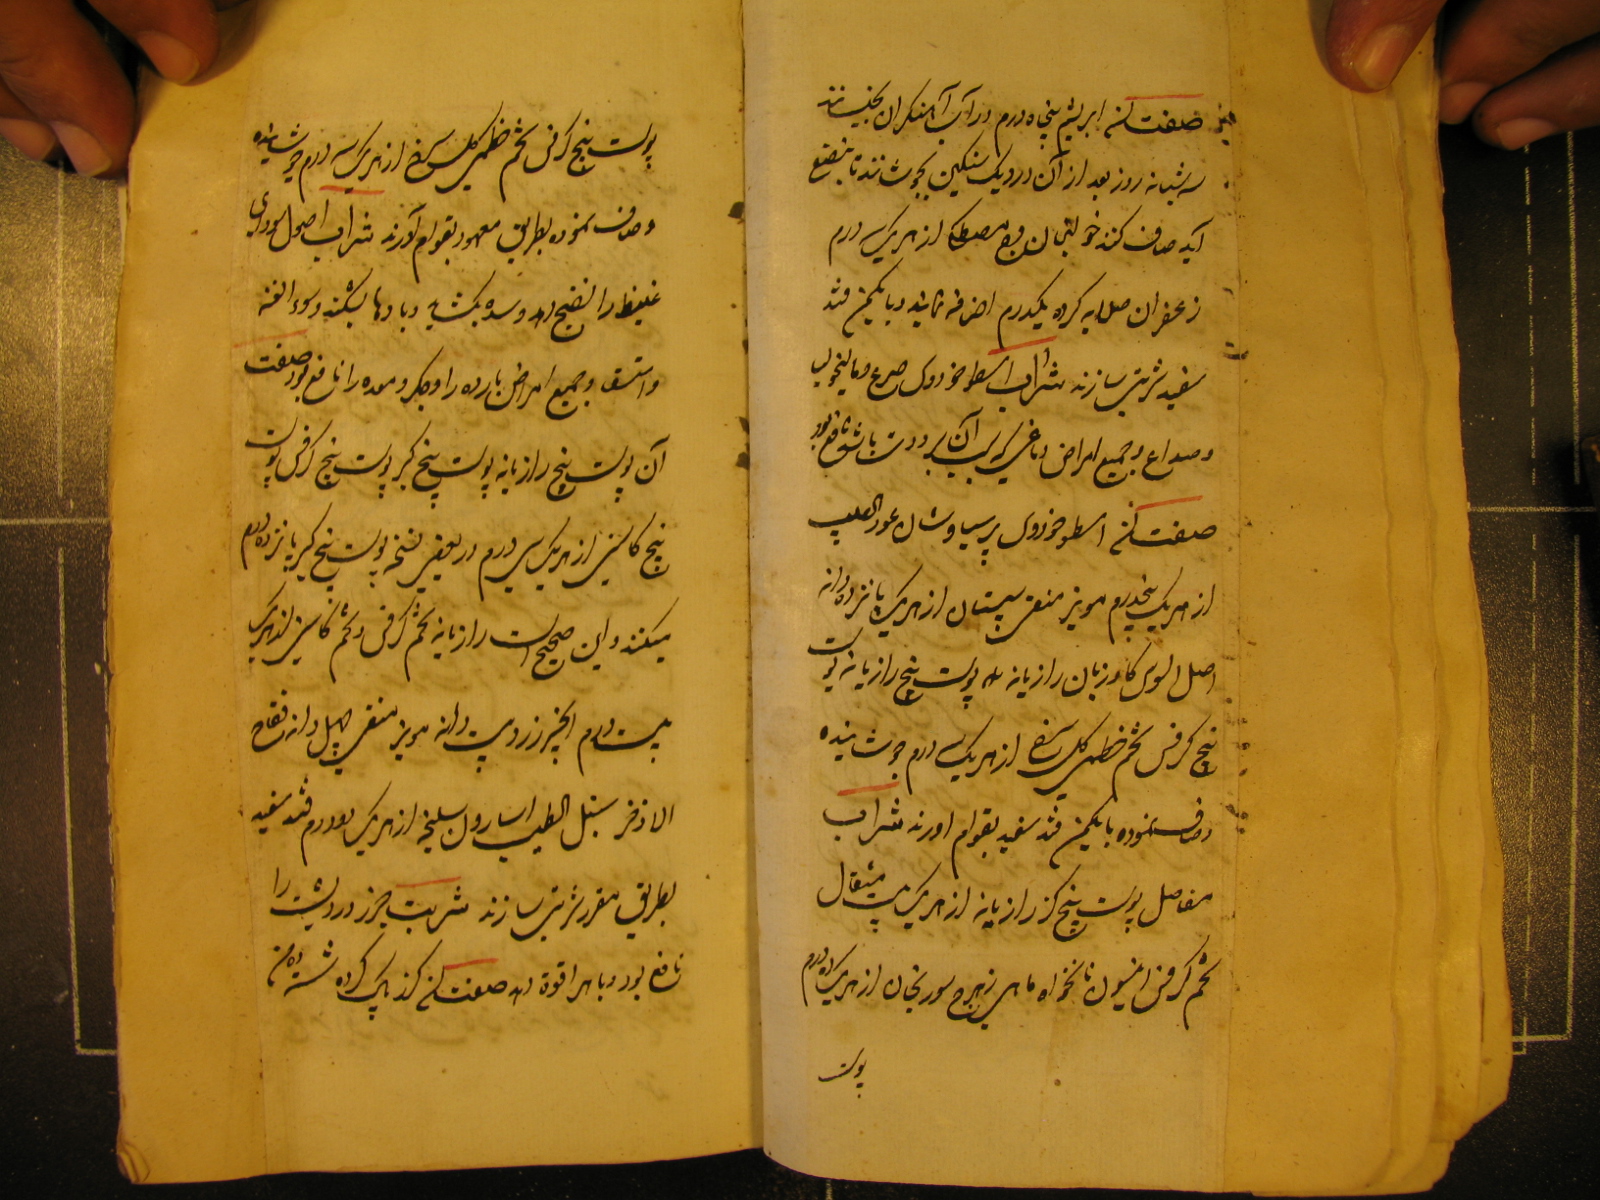 صفت آن ابریشم پنجاه درم در آب آهنگران بخیسانند
سه شبانه روز بعد از آن در دیک سنکین بجوشانند تا بنصف
آید صاف کنند خولنجان مصطکی از هر یک سه درم
زعفران صلایه کرده یکدرم اضافه نمایند و با یکمن قند
سفید شربتی سازند شراب اسطوخودوس صرع و مالیخولیا
و صداع و جمیع امراض دماغی که سبب آن برودت باشد نافع بود
صفت آن اسطوخودوس پرسیاوشان عود الصلیب
از هر یک پنجدرم مویز منقی سپستان از هر یک پانزده دانه
اصل السوس کاوزبان رازیانه پوست بیخ رازیانه پوست
بیخ کرفس تخم خطمی کل سرخ از هر یک سه درم جوشانیده
و صاف نموده با یکمن قند سفید بقوام اورند شراب
مفاصل پوست بیخ کبر رازیانه از هر یک بیست مثقال
تخم کرفس انیسون نانخواه ماهی زهرج سورنجان از هر یک ده درم
پوست
پوست بیخ کرفس تخم خطمی کل سرخ از هر یک سه درم جوشانیده
و صاف نموده بطریق معهود بقوام آورند شراب اصول مواد
غلیظ را نضج دهد و سده بکشاید و بادها بشکند و سوء القنیه
و استسقا و جمیع امراض بارده را و جکر و معده را نافع بود صفت
آن پوست بیخ رازیانه پوست بیخ کبر پوست بیخ کرفس پوست
بیخ کاسنی از هر یک سی درم در بعضی نسخه پوست بیخ کبر پانزده درم
میکنند و این صحیح است رازیانه تخم کرفس و تخم کاسنی از هر یک
بیست درم انجیر زرد بیست دانه مویز منقی چهل دانه فقاح
الاذخر سنبل الطیب اسارون سلیخه از هر یک دو درم قند سفید
بطریق مقرر شربتی سازند شربت جزر درد پشت را
نافع بود و باه را قوة دهد صفت آن کزر پاک کرده شسته ده من